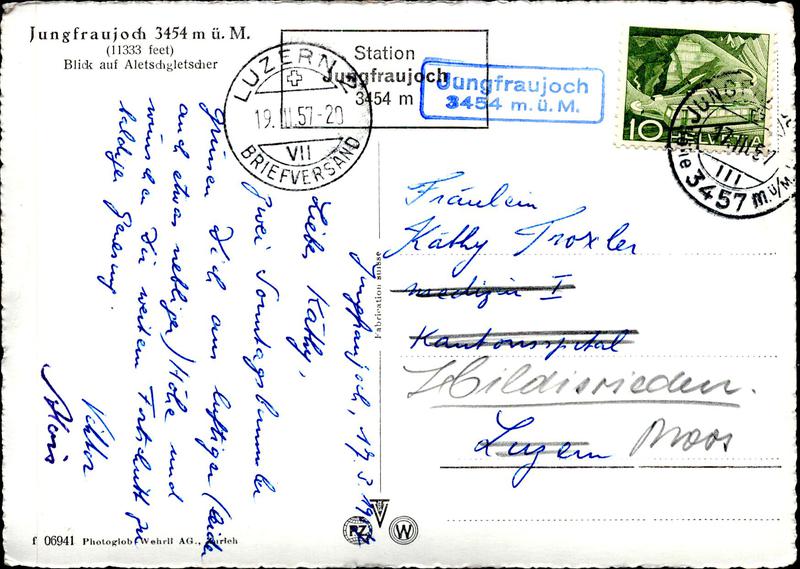 Jungfraujoch 3454 m ü. M.
(11333 feet)
Blick auf Aletschgletscher
LUZERN 2
19. III. 57-20
VII
BRIEFVERSAND
Station
Jungfraujoch
3454 m
Jungfraujoch
3454 m.ü.M.
10 HELVETIA
JUNGFRAUJOCH
17. III. 57
III
3457 m.ü/M.
Jungfraujoch, 17. 3. 19
Liebe Käthy,
zwei Sonntagsbummler
grüssen Dich aus luftiger (leider
auch etwas nebliger) Höhe und
wünschen Dir weitern Fortschritt zu
baldiger Genesung.
Viktor
Fräulein
Käthy Troxler
Medizin I
Kantonsspital
Hildisrieden.
Luzern Moos
Fabrication suisse
PZ W
f 06941 Photoglob-Wehrli AG., Zürich